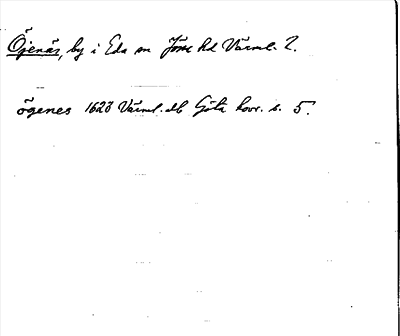 Öjenäs, by i Eda sn Jösse hd Värml. l.
ögenes 1623 Värml. db Göta hovr. s. 5.